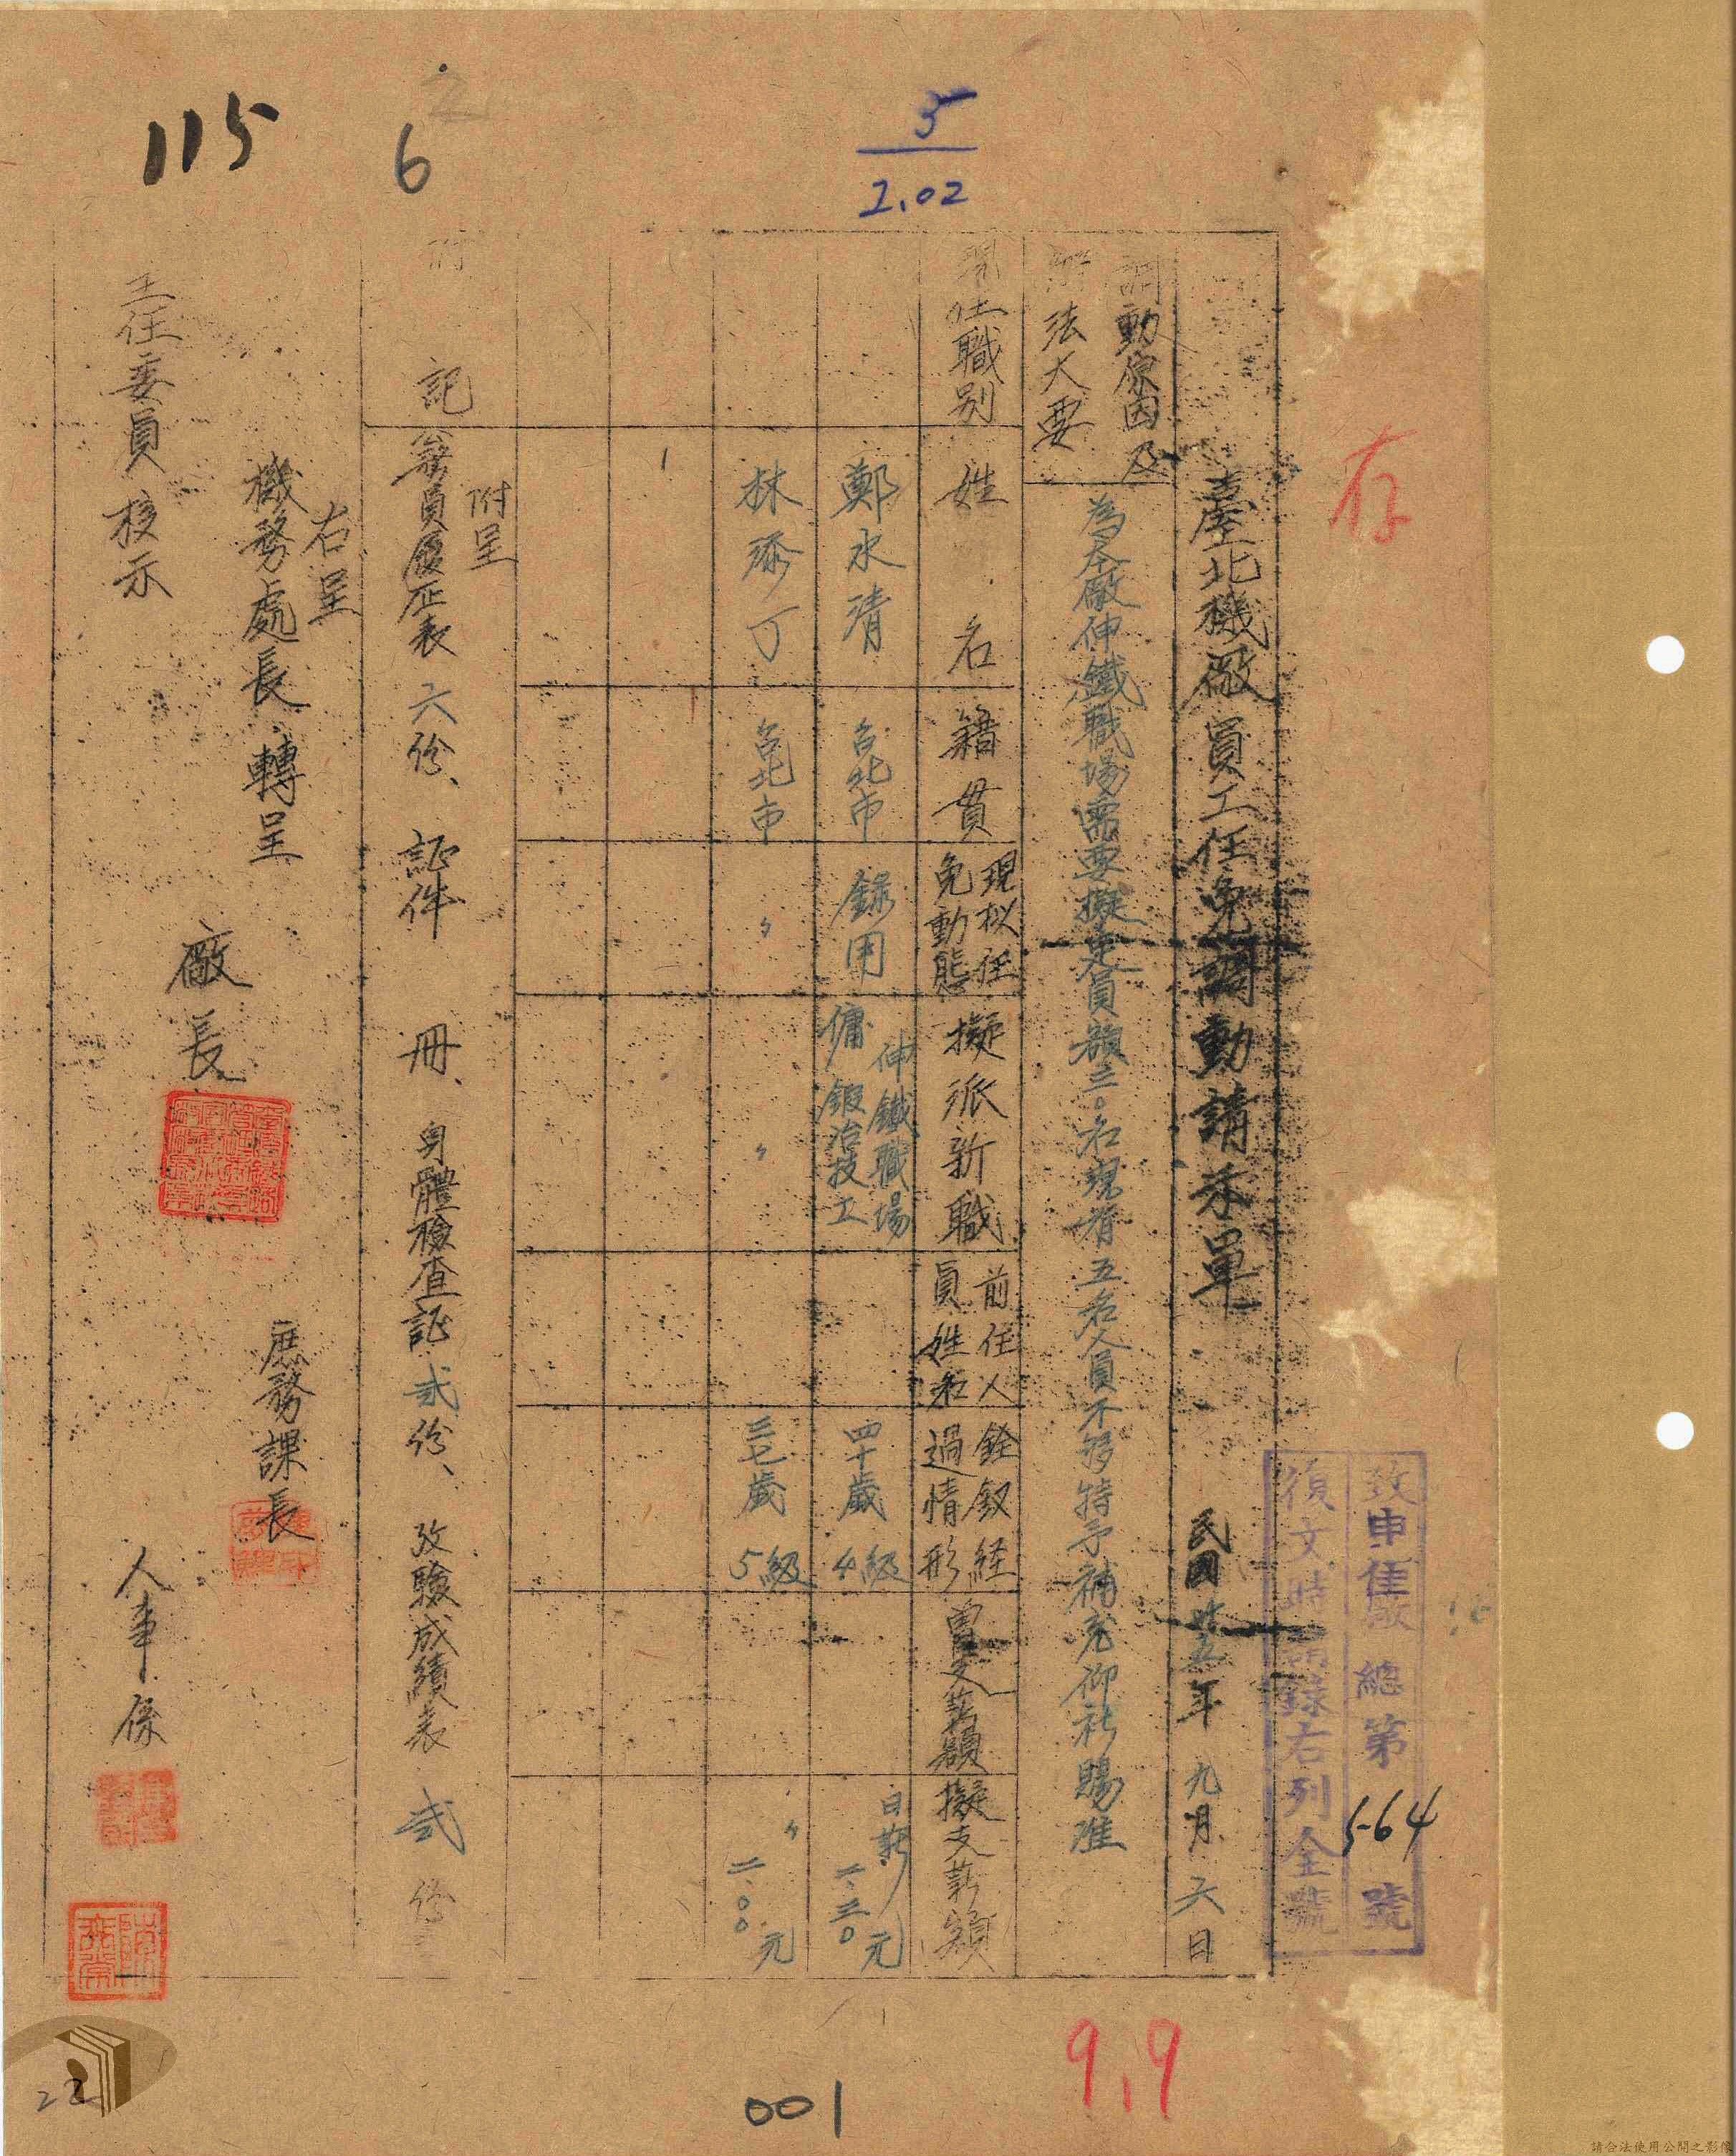 115
6
5
2.02
存
致申任
總第564號
復文時請錄右列全號
臺北機廠員工任免調動請示單 民國卅五年九月六日
調動原因及
辦法大要
為本廠伸鐵職場需要擬定員額三〇名現有五名人員不够特予補充仰祈賜准
現任職別
姓名
籍貫
現拟任
免動態
擬派新職
前任人
員姓名
銓叙経
過情形
曾支薪額
擬支薪額
鄭水清
台北市
錄用
伸鐵職場
傭鍛冶技工
四十歲 4級
日薪
二.三〇元
林添丁
台北市
〃
〃
三七歲 5級
〃
二.〇〇元
附記
附呈
雇員履歷表六份、証件 冊、身體檢查証弍份、攷驗成績表弍份
右呈
機務處長轉呈
主任委員核示
廠長
庶務課長
人事係
9.9
001
22
請合法使用公開之影像